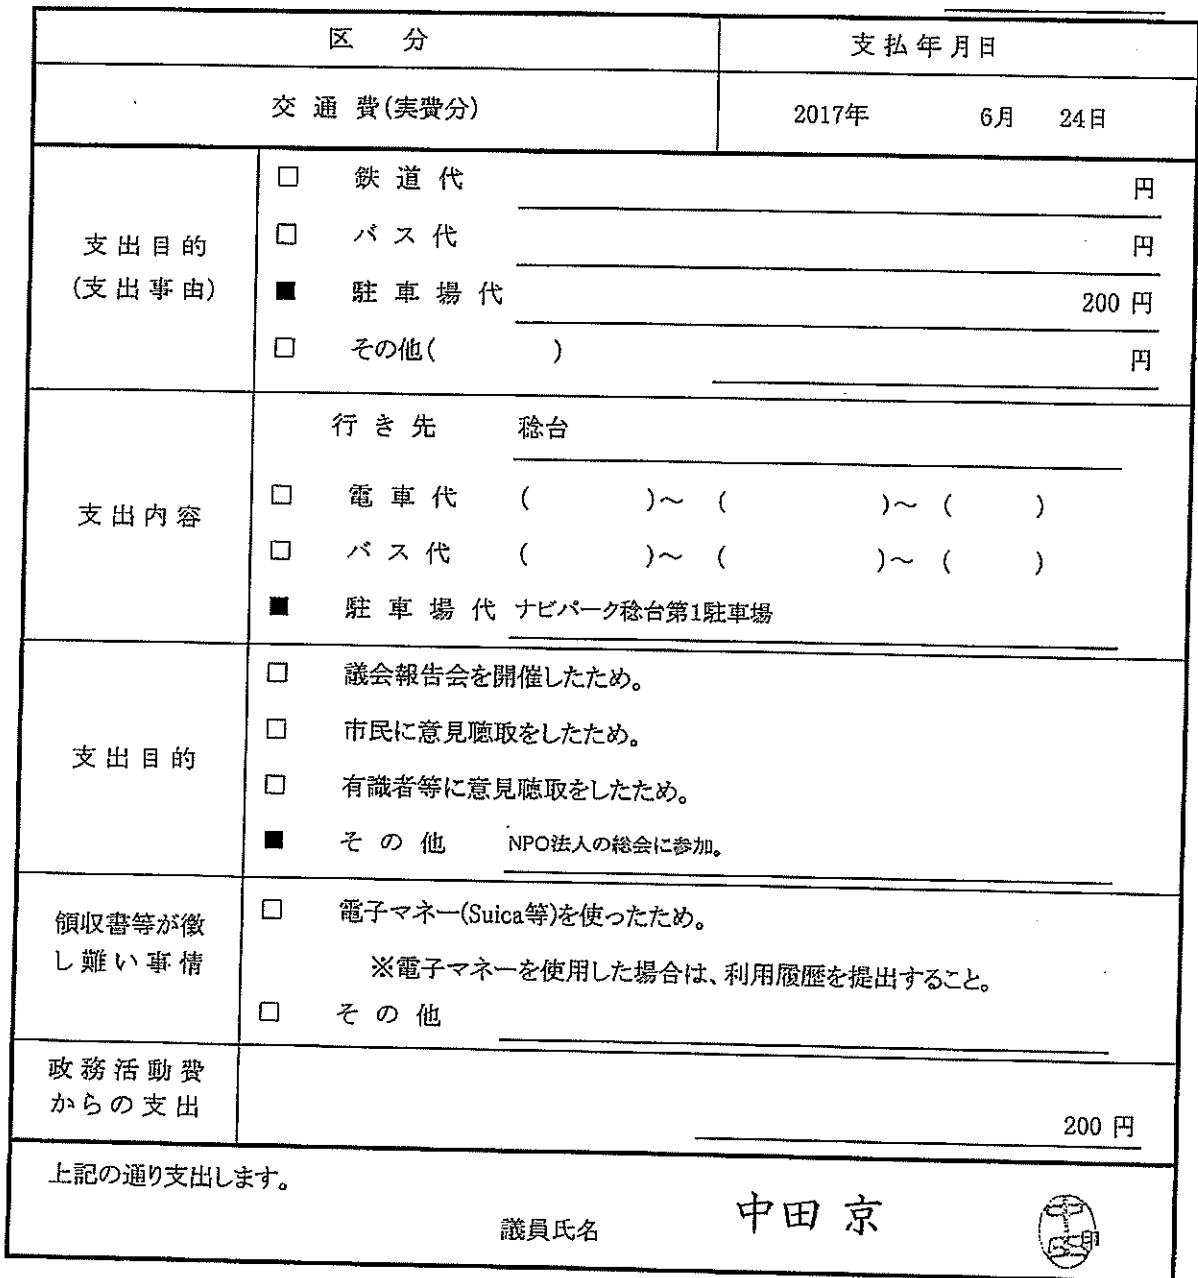 区 分 支払年月日
交 通 費(実費分) 2017年 6月 24日
支出目的
(支出事由)
□ 鉄 道 代 円
□ バ ス 代 円
■ 駐 車 場 代 200 円
□ その他( ) 円
支出内容
行 き 先 稔台
□ 電 車 代 ( )～ ( )～ ( )
□ バ ス 代 ( )～ ( )～ ( )
■ 駐 車 場 代 ナビパーク稔台第1駐車場
支出目的
□ 議会報告会を開催したため。
□ 市民に意見聴取をしたため。
□ 有識者等に意見聴取をしたため。
■ そ の 他 NPO法人の総会に参加。
領収書等が徴
し難い事情
□ 電子マネー(Suica等)を使ったため。
※電子マネーを使用した場合は、利用履歴を提出すること。
□ そ の 他
政務活動費
からの支出
200 円
上記の通り支出します。
議員氏名 中田 京